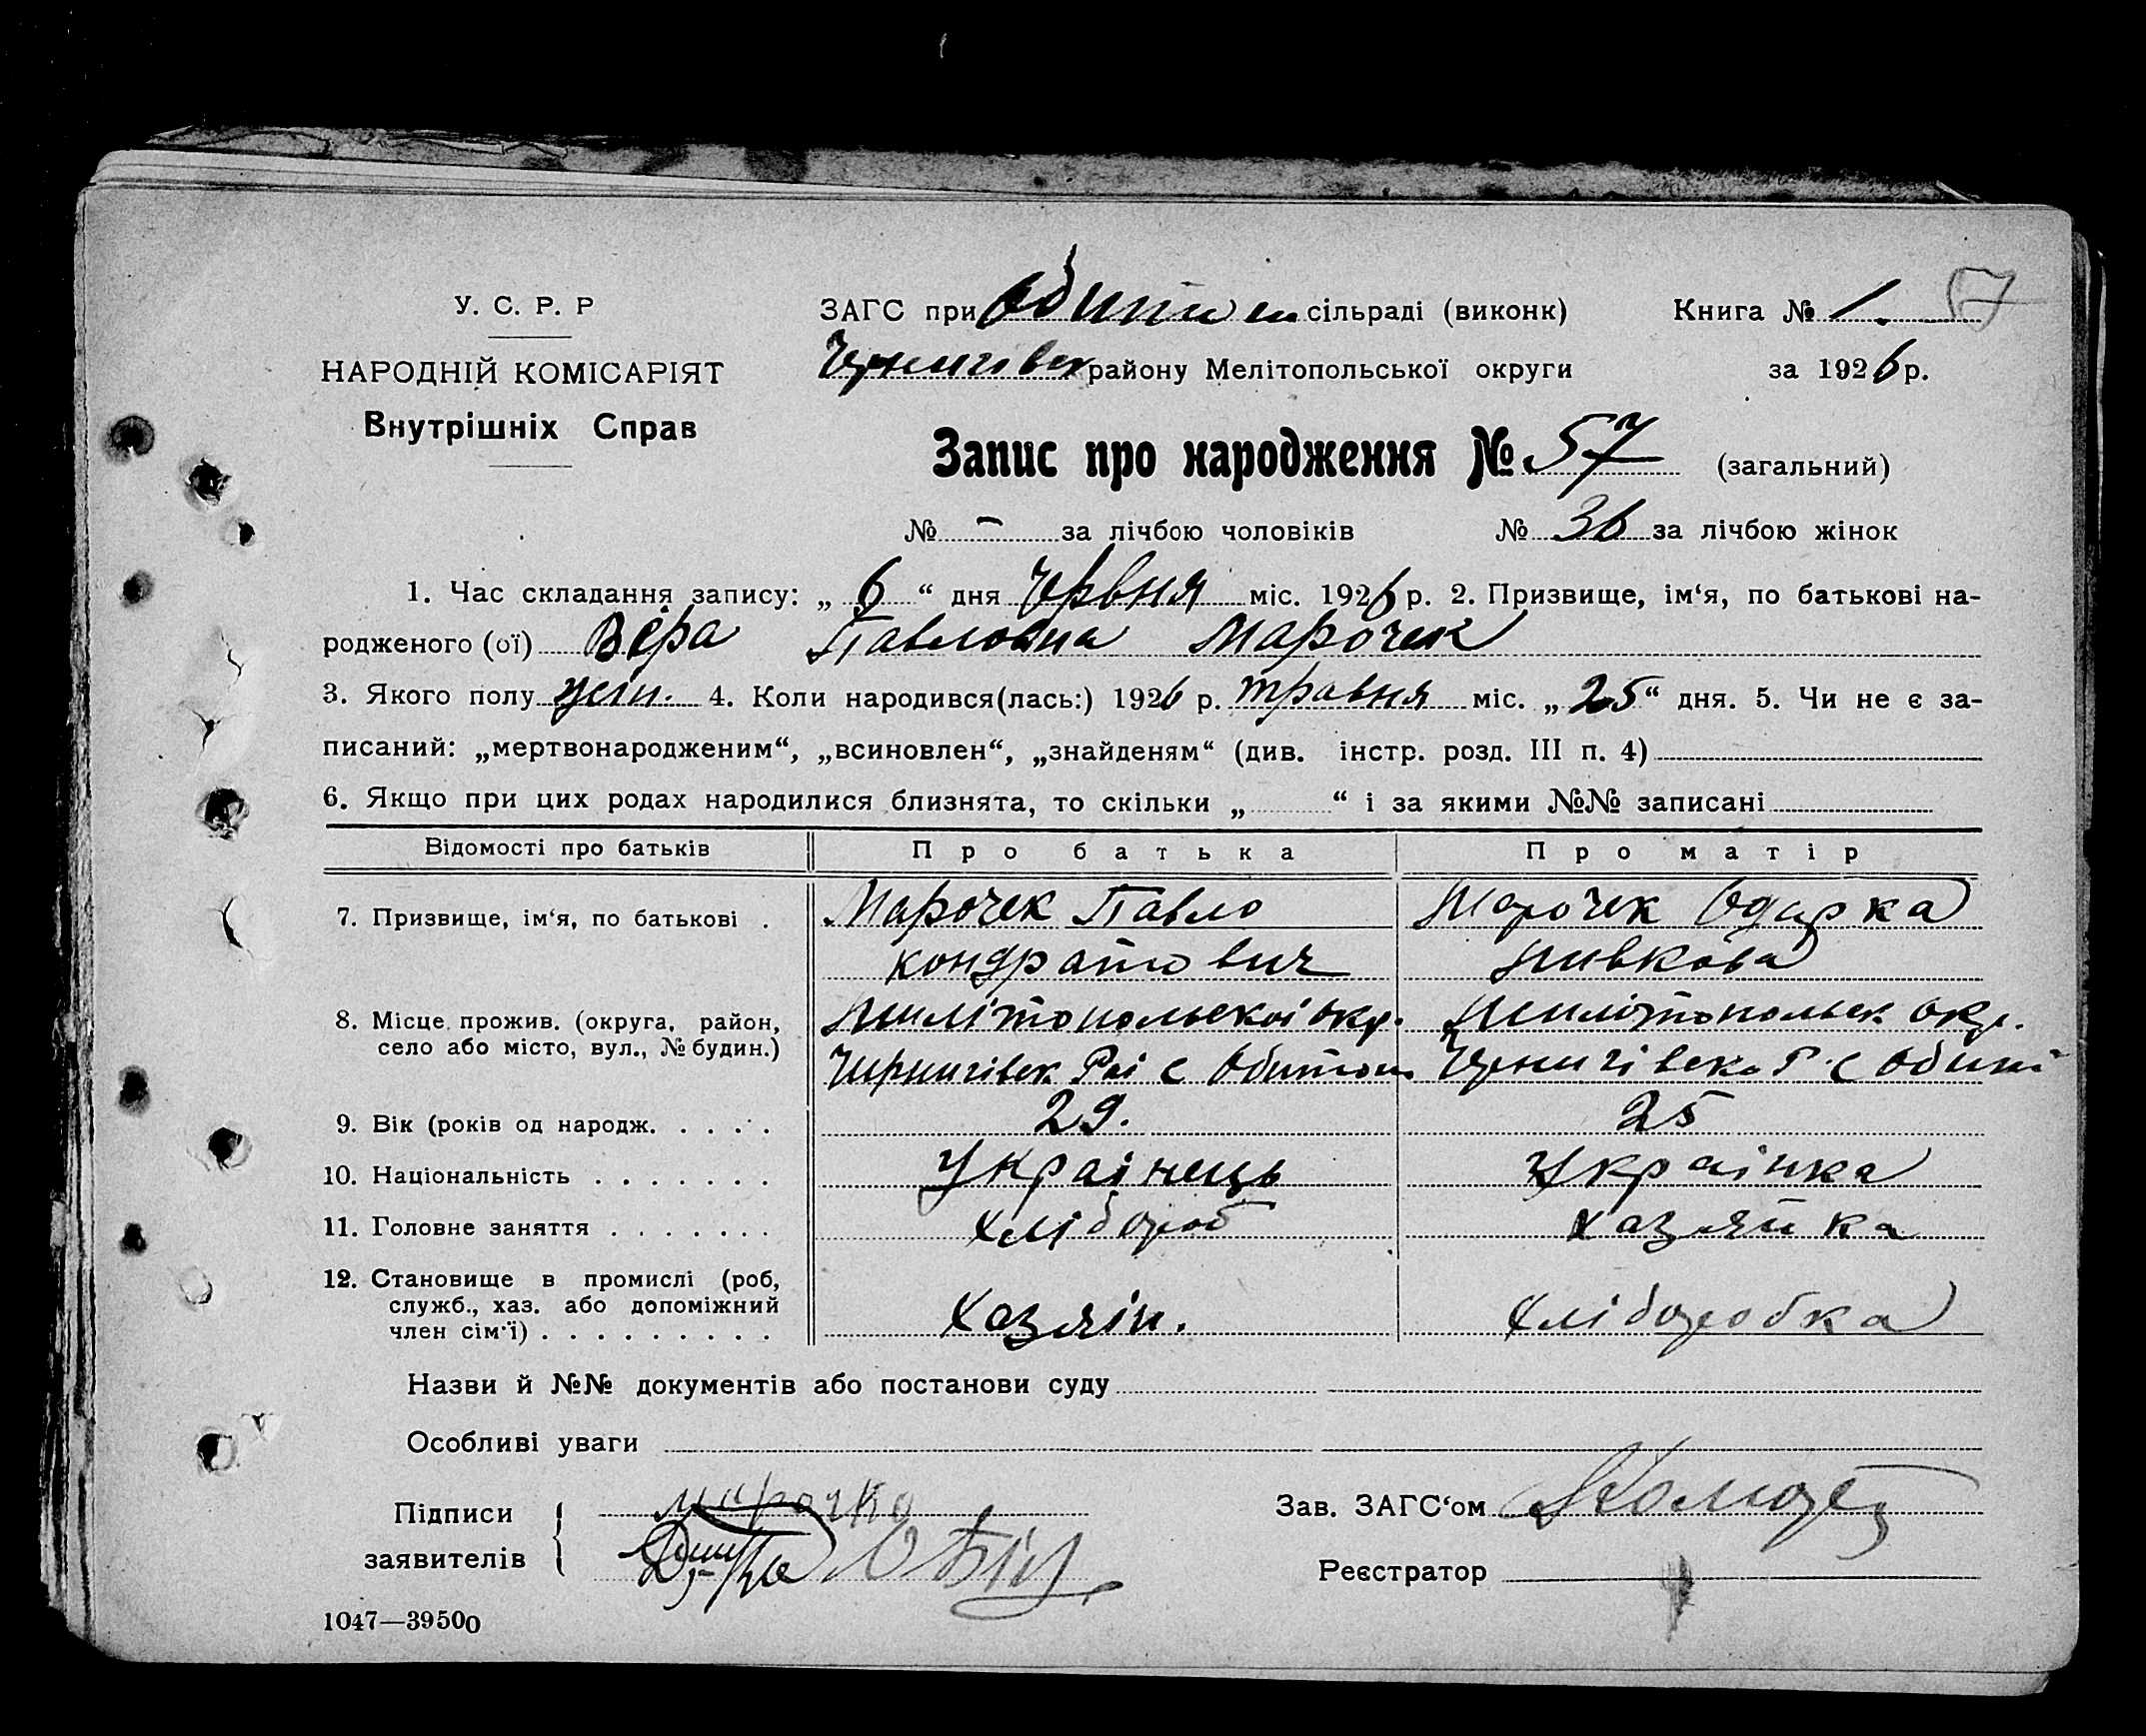 У. С. Р. Р
НАРОДНІЙ КОМІСАРІЯТ
Внутрішніх Справ
ЗАГС при сільраді (виконк) Книга № 1. 57
Чернигівск району Мелітопольської округи за 1926 р.
Запис про народження № 57 (загальний)
№ – за лічбою чоловіків № 36 за лічбою жінок
1. Час складання запису: „ 6 “ дня Червня міс. 1926 р. 2. Призвище, ім‘я, по батькові на-
родженого (ої) Вера Павловна Марочек
3. Якого полу жін. 4. Коли народився(лась:) 1926 р. травня міс. „ 25 “ дня. 5. Чи не є за-
писаний: „мертвонародженим“, „всиновлен“, „знайденям“ (див. інстр. розд. III п. 4)
6. Якщо при цих родах народилися близнята, то скільки „ “ і за якими №№ записані
Відомості про батьків Про батька Про матір
7. Призвище, ім‘я, по батькові . Марочек Павло Марочек Одарка
Кондратович
8. Місце прожив. (округа, район, село або місто, вул., № будин.) Милітопольскоі окр. Милітопольск окр.
Чирнигівск Рай с Чернигівск. Р. с
9. Вік (років од народж. . . . . 29. 25
10. Національність . . . . . . . Украінець Украінка
11. Головне заняття . . . . . . . хлібороб хазяйка
12. Становище в промислі (роб, служб., хаз. або допоміжний член сім‘ї) . . . . . . . . . хазяін. хліборобка
Назви й №№ документів або постанови суду
Особливі уваги
Підписи заявителів Марочко
Зав. ЗАГС‘ом
Реєстратор
1047—39500